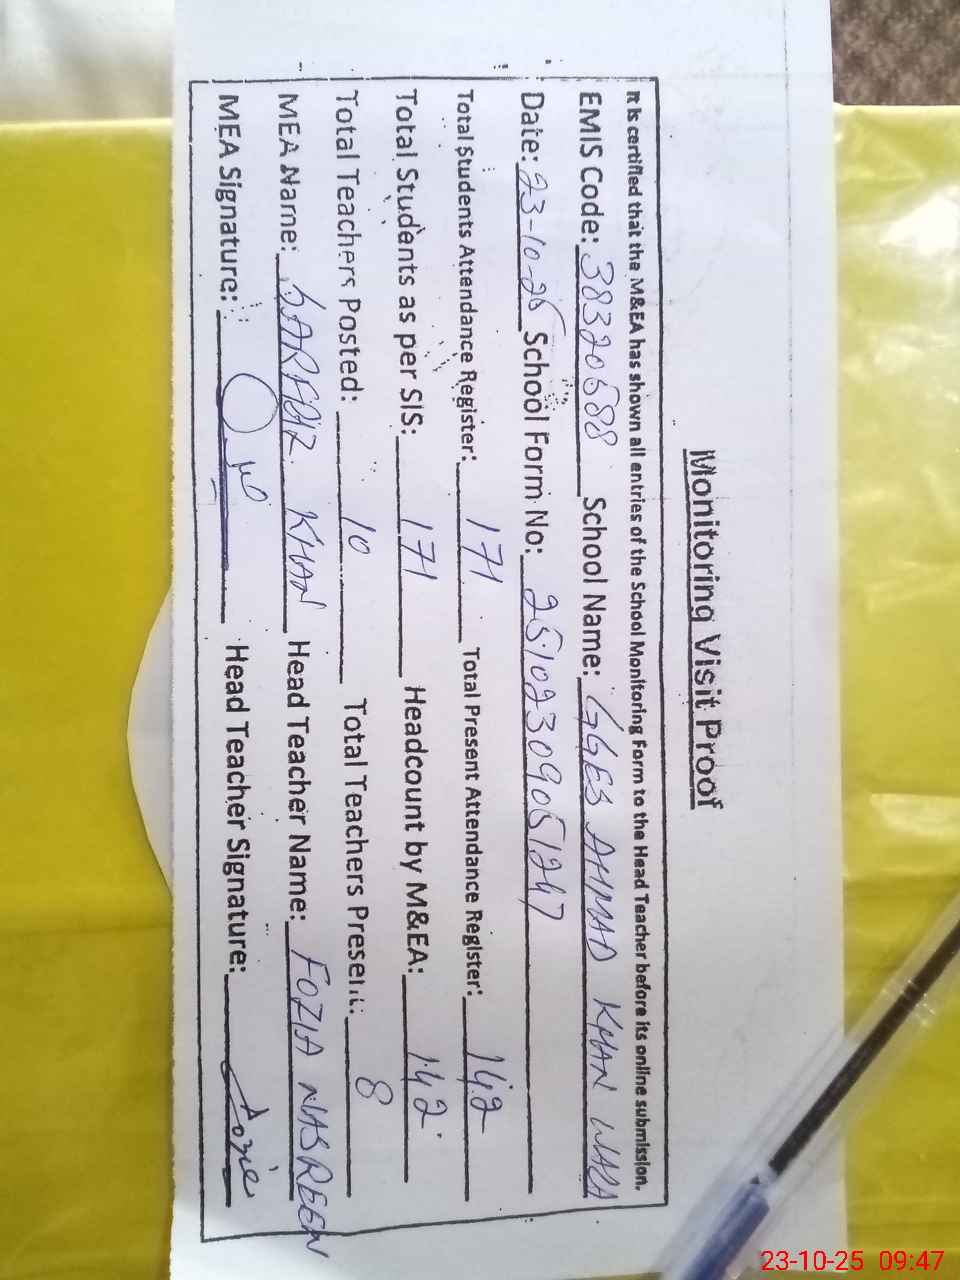 Monitoring Visit Proof
It is certified that the M&EA has shown all entries of the School Monitoring Form to the Head Teacher before its online submission.
EMIS Code: 38320588 School Name: GGES AHMAD KHAN WALA
Date: 23-10-25 School Form No: 25102309051247
Total Students Attendance Register: 171 Total Present Attendance Register: 142
Total Students as per SIS: 171 Headcount by M&EA: 142
Total Teachers Posted: 10 Total Teachers Present: 8
MEA Name: KHAN Head Teacher Name: FOZIA NASREEN
MEA Signature: Head Teacher Signature: Fozia
23-10-25 09:47